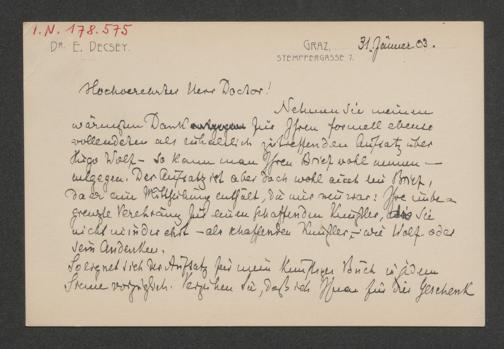 I.N. 178.575
DR. E. DECSEY.
GRAZ, 31. Jänner 03.
STEMPFERGASSE 7.
Hochverehrter Herr Doctor!
Nehmen Sie meinen
wärmsten Dank für Ihren formell ebenso
vollendeten als inhaltlich zutreffenden Aufsatz über
Hugo Wolf – so kann man Ihren Brief wohl nennen –
entgegen. Der Aufsatz ist aber doch wohl auch ein Brief,
da er eine Mittheilung enthält, die mir neu war: Ihre unbe-
grenzte Verehrung für einen schaffenden Künstler, die Sie
nicht minder ehrt – als schaffenden Künstler, – wie Wolf oder
sein Andenken.
So eignet sich der Aufsatz für mein Buch in jedem
Sinne vorzüglich. Verzeihen Sie, daß ich Ihnen für das Geschenk